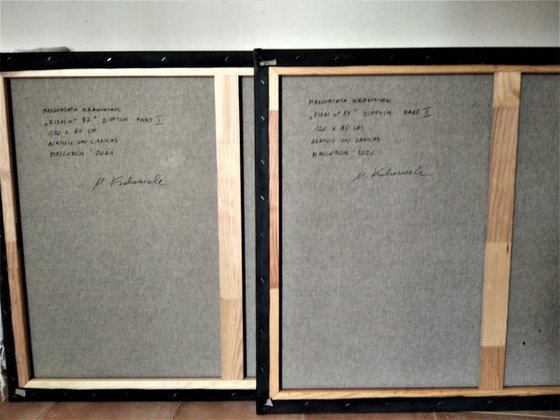 MAŁGORZATA KRAKOWIAK
„FISH n° 87" DIPTYCH PART I
120 x 80 CM
ACRYLIC ON CANVAS
MALLORCA '2021
M. Krakowiak
MAŁGORZATA KRAKOWIAK
„FISH n° 87" DIPTYCH PART II
120 x 80 CM
ACRYLIC ON CANVAS
MALLORCA '2021
M. Krakowiak